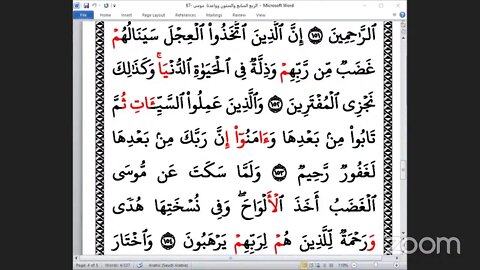 الربع السابع والستون وواعدنا موسى -67 - Microsoft Word
Home Insert Page Layout References Mailings Review View
ٱلرَّٰحِمِينَ ١٥١ إِنَّ ٱلَّذِينَ ٱتَّخَذُواْ ٱلۡعِجۡلَ سَيَنَالُهُمۡ
غَضَبٞ مِّن رَّبِّهِمۡ وَذِلَّةٞ فِي ٱلۡحَيَوٰةِ ٱلدُّنۡيَاۚ وَكَذَٰلِكَ
نَجۡزِي ٱلۡمُفۡتَرِينَ ١٥٢ وَٱلَّذِينَ عَمِلُواْ ٱلسَّيِّـَٔاتِ ثُمَّ
تَابُواْ مِنۢ بَعۡدِهَا وَءَامَنُوٓاْ إِنَّ رَبَّكَ مِنۢ بَعۡدِهَا
لَغَفُورٞ رَّحِيمٞ ١٥٣ وَلَمَّا سَكَتَ عَن مُّوسَى
ٱلۡغَضَبُ أَخَذَ ٱلۡأَلۡوَاحَۖ وَفِي نُسۡخَتِهَا هُدٗى
وَرَحۡمَةٞ لِّلَّذِينَ هُمۡ لِرَبِّهِمۡ يَرۡهَبُونَ ١٥٤ وَٱخۡتَارَ
zoom
Page: 4 of 5 Words: 4/227 Arabic (Saudi Arabia) 110%